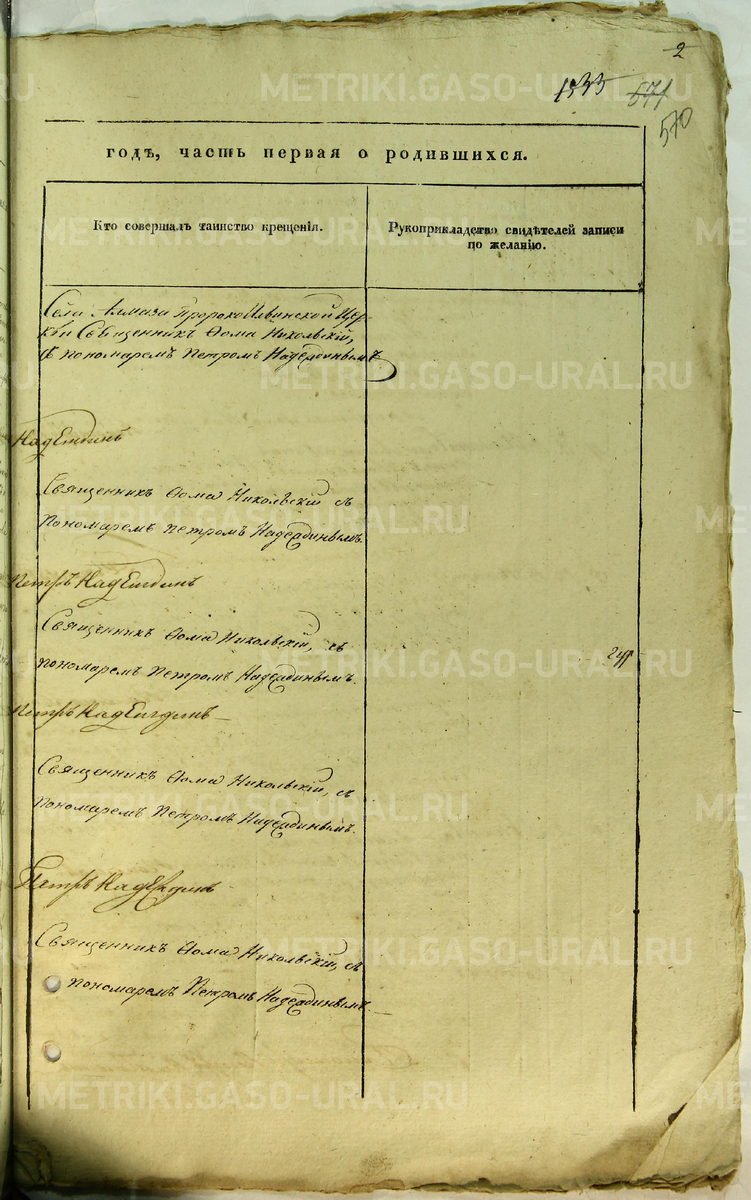 2
1833 571
570
годѣ, часть первая о родившихся.
Кто совершалъ таинство крещенія.
Рукоприкладство свидѣтелей записи
по желанію.
Села Алмаза Пророкоильинской Цер-
кви Священникъ Ѳома Никольскій,
съ пономаремъ Петромъ Надеждинымъ
Надеждинъ
Священникъ Ѳома Никольскій съ
пономаремъ Петромъ Надеждинымъ.
Петръ Надеждинъ
Священникъ Ѳома Никольскій, съ
пономаремъ Петромъ Надеждинымъ.
Петръ Надеждинъ
Священникъ Ѳома Никольскій, съ
пономаремъ Петромъ Надеждинымъ.
Петръ Надеждинъ
Священникъ Ѳома Никольскій, съ
пономаремъ Петромъ Надеждинымъ.
METRIKI.GASO-URAL.RU